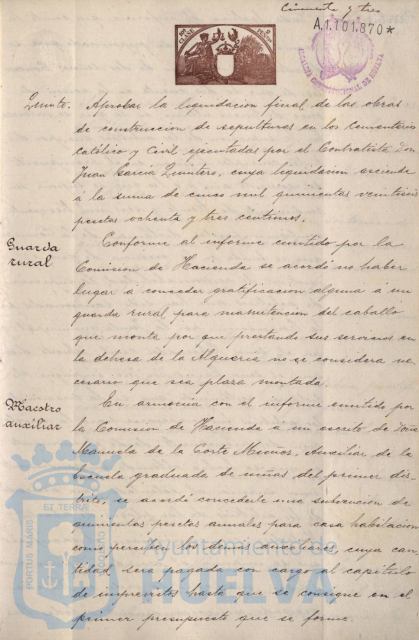 Cincuenta y tres
A.1.101.870*
ALCALDIA CONSTITUCIONAL DE HUELVA
Quinto. Aprobar la liquidacion final de las obras
de construccion de sepulturas en los Cementerios
Católico y Civil ejecutadas por el Contratista Don
Juan Garcia Quintero, cuya liquidacion asciende
á la suma de cinco mil quinientas veintiseis
pesetas ochenta y tres centimos.
Guarda
rural
Conforme al informe emitido por la
Comision de Hacienda se acordó no haber
lugar á conceder gratificacion alguna á un
guarda rural, para manutencion del caballo
que monta por que prestando sus servicios en
la dehesa de la Alqueria no se considera ne
cesario que sea plaza montada.
Maestro
auxiliar
En armonia con el informe emitido por
la Comision de Hacienda á un escrito de Doña
Manuela de la Corte Munos, Auxiliar de la
Escuela graduada de niñas del primer dis-
trito, se acordó concederle una subvencion de
quinientas pesetas anuales para casa habitacion
como perciben los demas auxiliares, cuya can-
tidad será pagada con cargo al capitulo
de imprevistos hasta que se consigne en el
primer presupuesto que se forme.
PORTUS MARIS
ET TERRAE
CUSTODIA
Ayuntamiento de
HUELVA